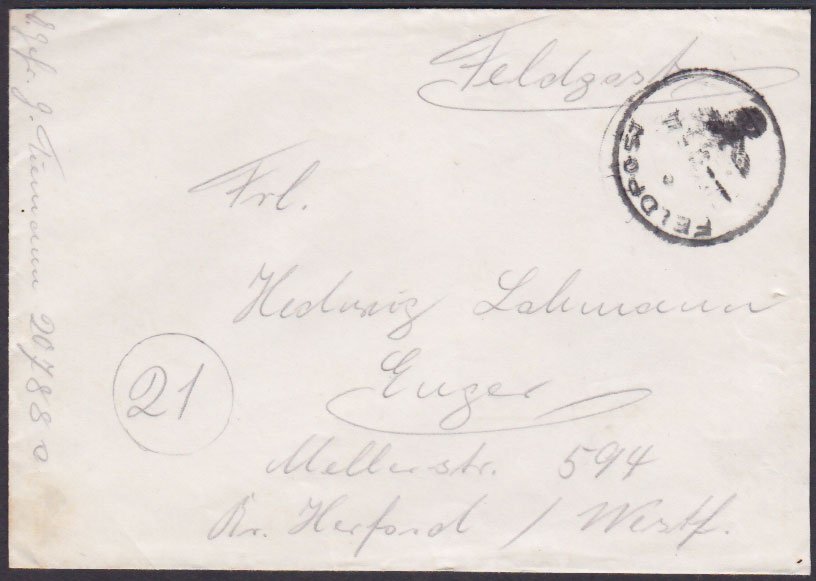 Feldpost
FELDPOST
Frl.
Hedwig Lahmann
Enger
21
Mellerstr. 594
Kr. Herford / Westf.
O.Gefr. G. Tiemann 20788 D